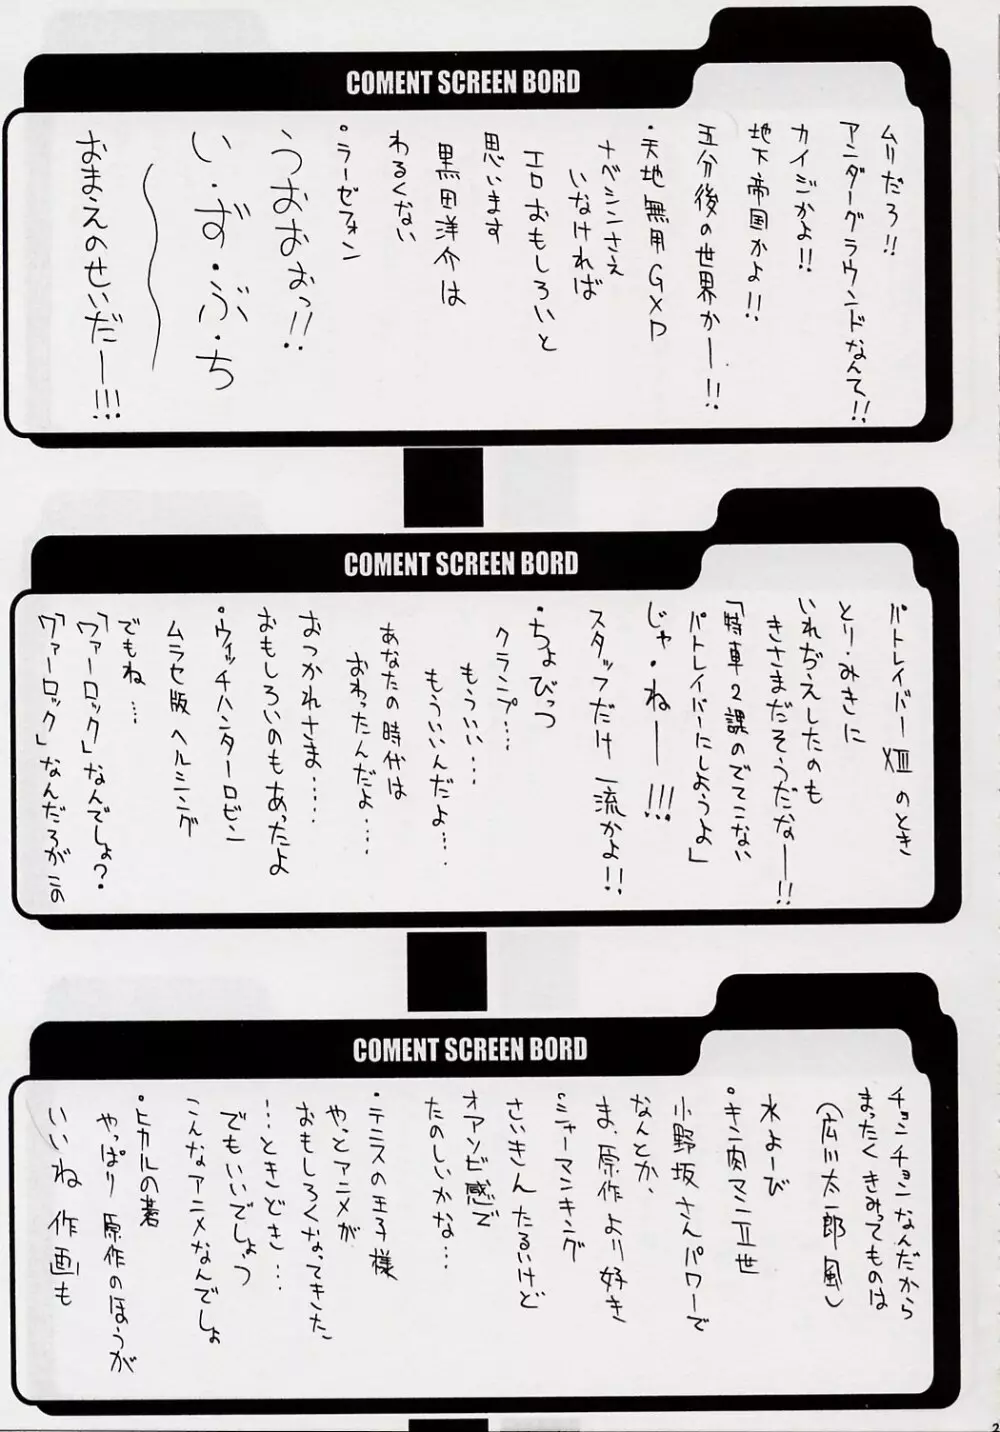 COMENT SCREEN BORD
ムリだろ!!
アンダーグラウンドなんて!!
カイジかよ!!
地下帝国かよ!!
五分後の世界かー!!
・天地無用GXP
ナベシンさえ
いなければ
エロおもしろいと
思います
黒田洋介は
わるくない
・ラーゼフォン
うおおぉっ!!
い・ず・ぶ・ち
おまえのせいだー!!!
COMENT SCREEN BORD
パトレイバー XIII のとき
とり・みきに
いれぢえしたのも
きさまだそうだなー!!
「特車2課のでてこない
パトレイバーにしようよ」
じゃ・ねー!!!
スタッフだけ一流かよ!!
・ちょびっつ
クランプ…
もういい…
もういいんだよ…
あなたの時代は
おわったんだよ…
おつかれさま…
おもしろいのもあったよ
・ウィッチハンターロビン
ムラセ版 ヘルシング
でもね…
「ワァーロック」なんでしょ?・
「ワァーロック」なんだろがこの
COMENT SCREEN BORD
チョンチョンなんだから
まったくきみってものは
(広川太一郎風)
水よーび
・キン肉マンII世
小野坂さんパワーで
なんとか、
ま、原作より好き
・シャーマンキング
さいきんたるいけど
オアソビ感で
たのしいかな…
・テニスの王子様
やっとアニメが
おもしろくなってきた、
…ときどき…
でもいいでしょっ
こんなアニメなんでしょ
・ヒカルの碁
やっぱり原作のほうが
いいね 作画も
2